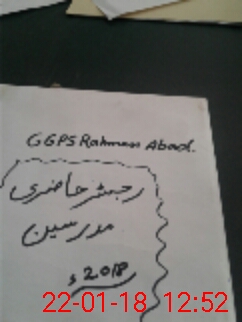 GGPS Rahman Abad.
رجسٹر حاضری
مدرسین
2018ء
22-01-18 12:52